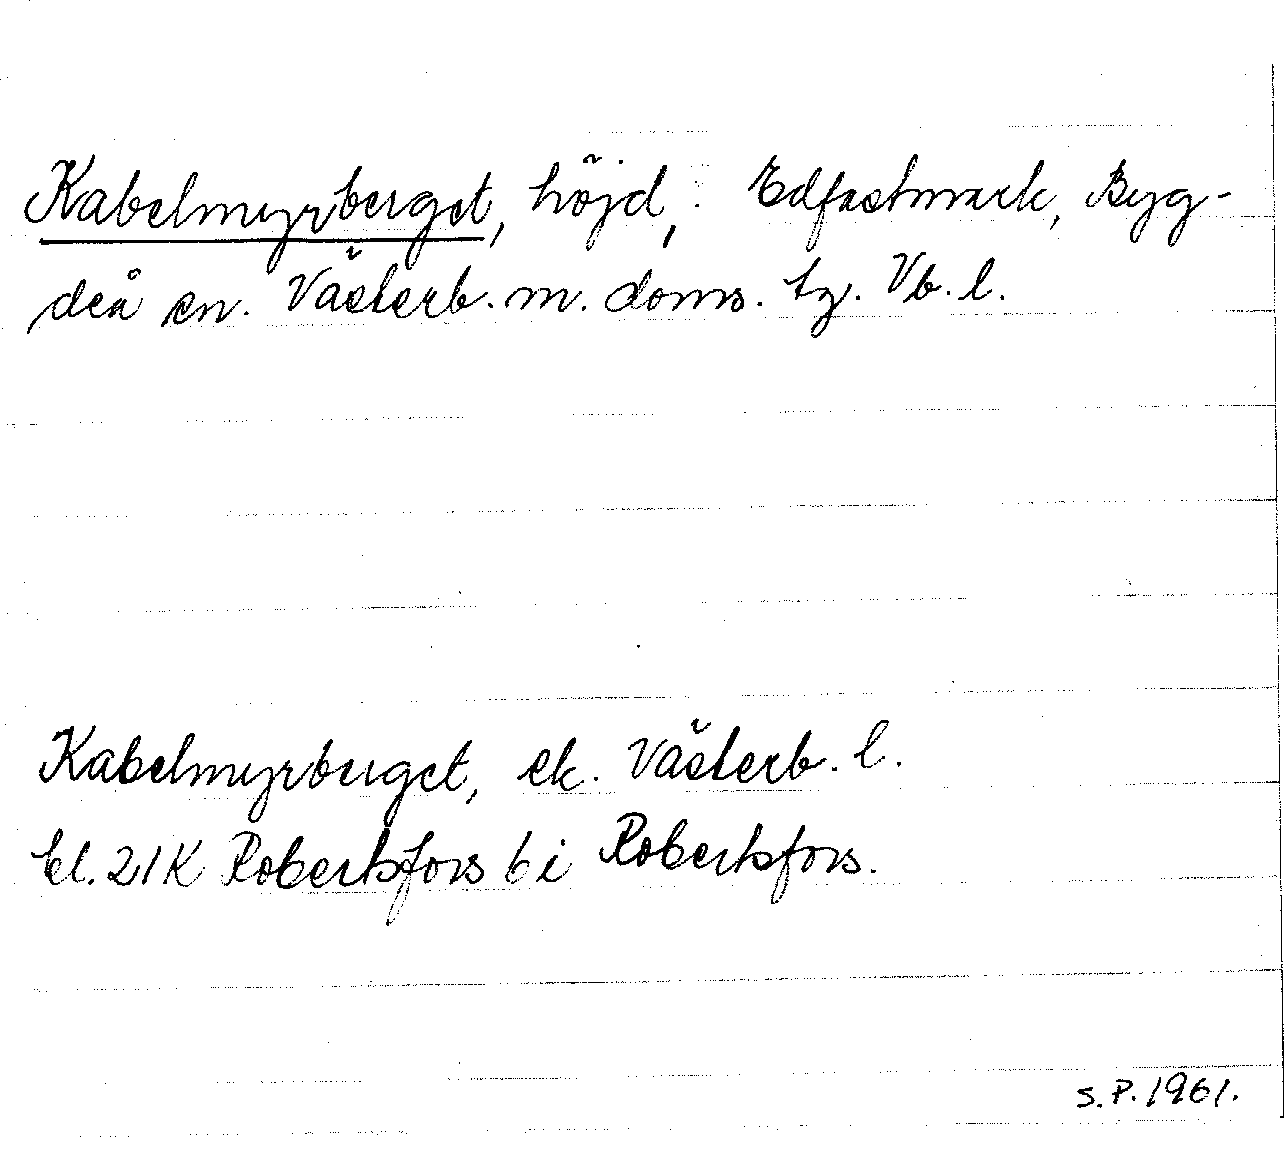 Kabelmyrberget, höjd, Edfastmark, Byg-
deå sn. Västerb. m. doms. tg. Vb. l.
Kabelmyrberget, ek. Västerb. l.
bl. 21K Robertsfors 6 i Robertsfors.
S. P. 1961.